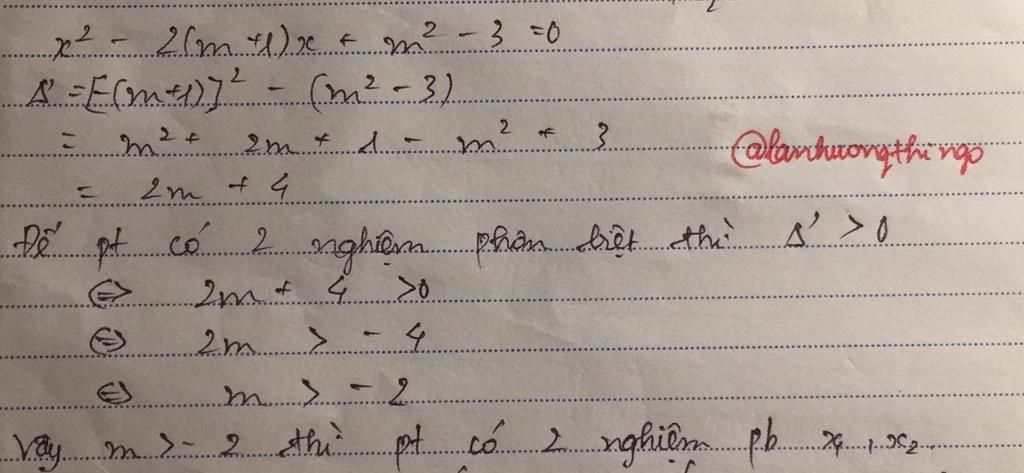 x² - 2(m+1)x + m² - 3 = 0
Δ' = [-(m+1)]² - (m² - 3)
= m² + 2m + 1 - m² + 3
@lanhuongthingo
= 2m + 4
Để pt có 2 nghiệm phân biệt thì Δ' > 0
⇔ 2m + 4 > 0
⇔ 2m > - 4
⇔ m > - 2
Vậy m > - 2 thì pt có 2 nghiệm pb x₁, x₂.